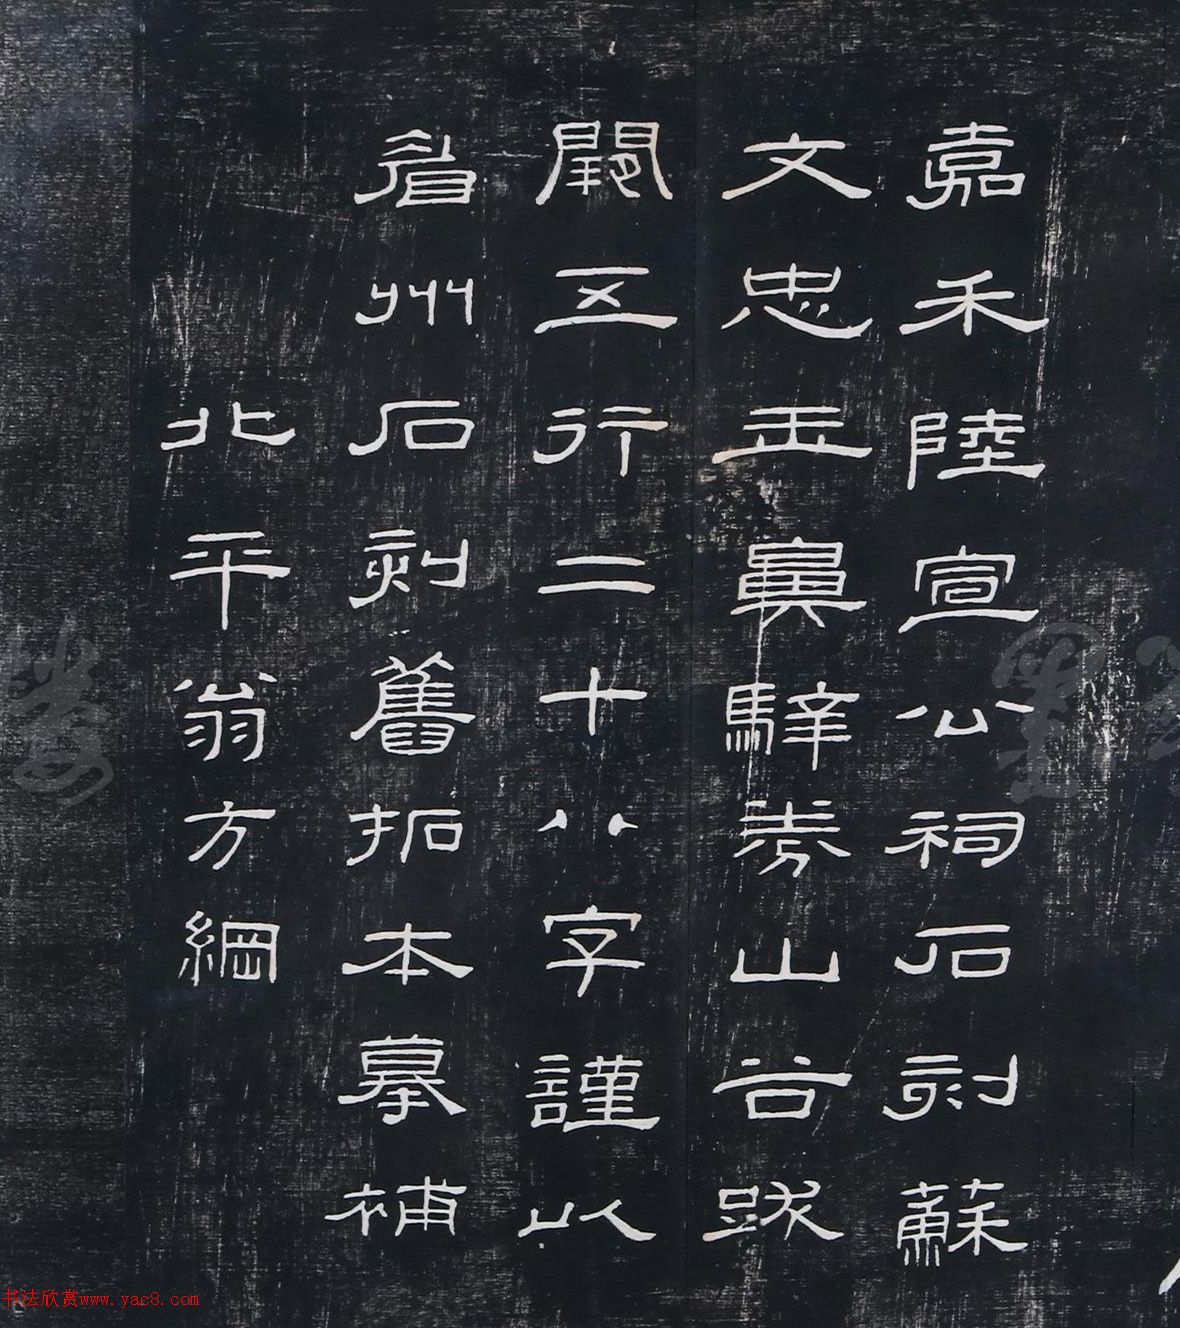 嘉禾陸宣公祠石刻蘇
文忠玉鼻騂券山谷跋
闕五行二十八字謹以
眉州石刻舊拓本摹補
北平翁方綱
书法欣赏www.yac8.com